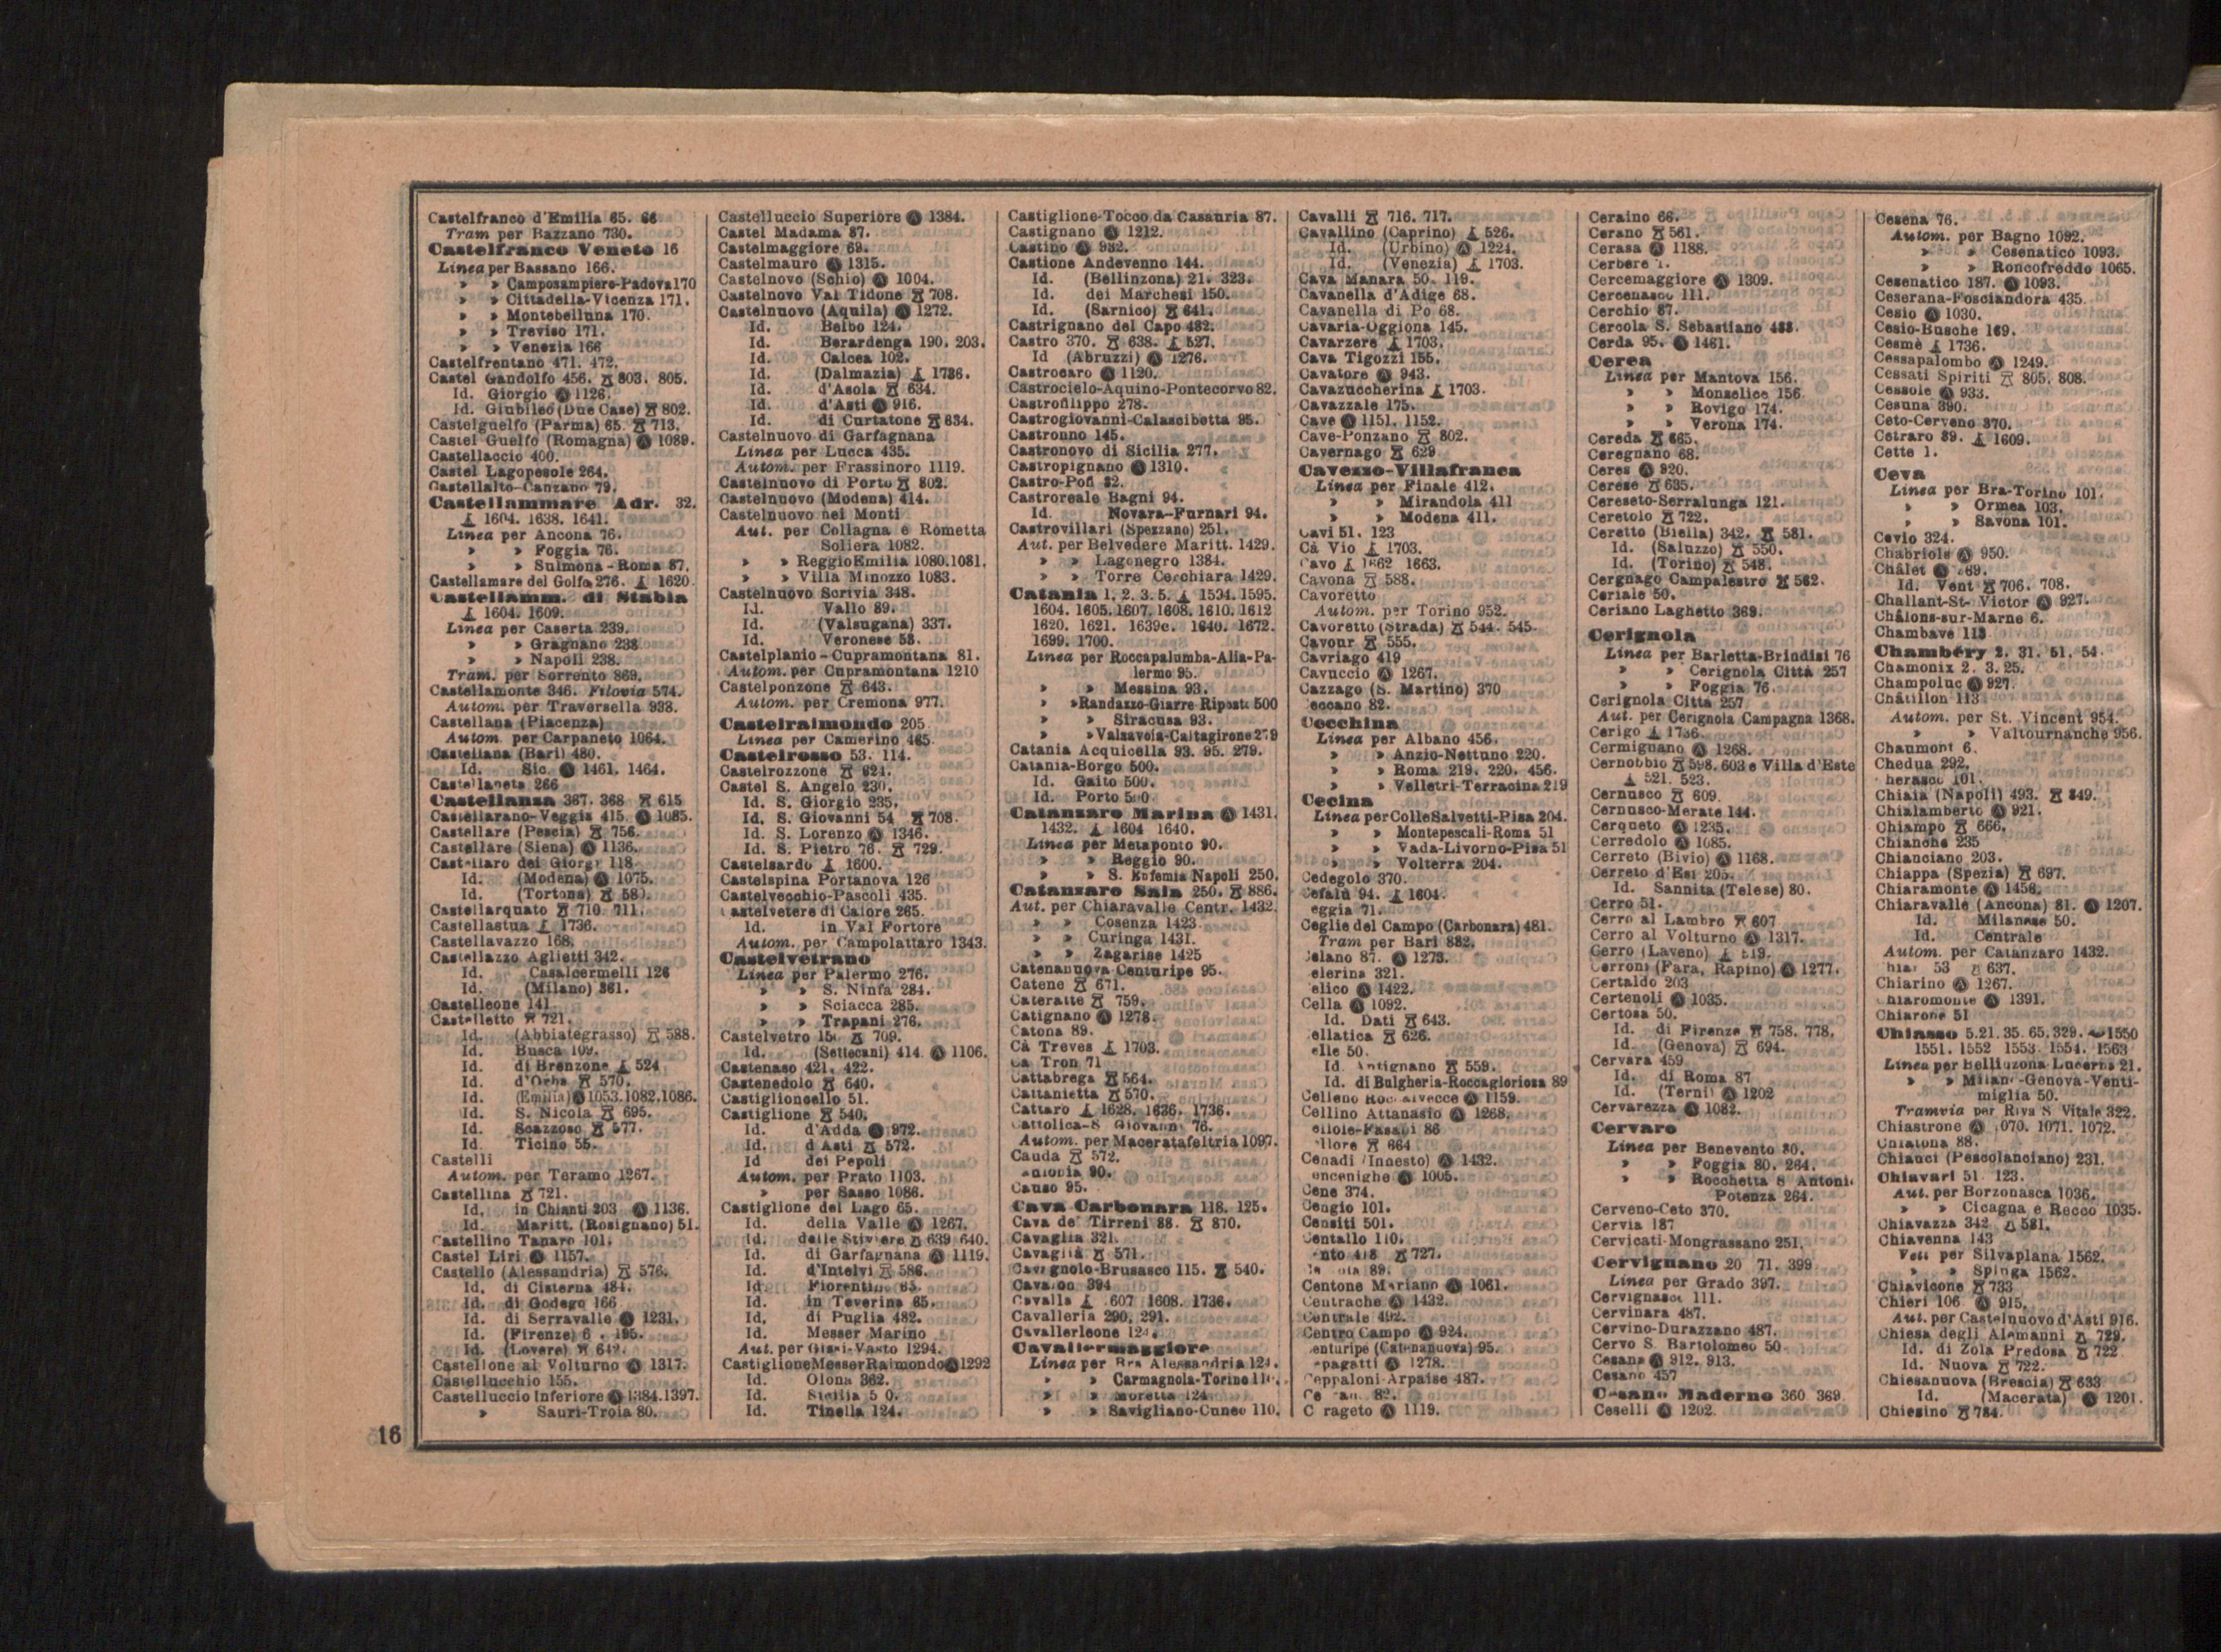 Castelfranco d'Emilia 65. 66
Tram per Bazzano 730.
Castelfranco Veneto 16
Linea per Bassano 166.
» » Camposampiero-Padova 170
» » Cittadella-Vicenza 171.
» » Montebelluna 170.
» » Treviso 171.
» » Venezia 166
Castelfrentano 471. 472.
Castel Gandolfo 456. 803. 805.
Id. Giorgio Ⓐ 1126.
Id. Giubileo (Due Case) 802.
Castelguelfo (Parma) 65. 713.
Castel Guelfo (Romagna) Ⓐ 1089.
Castellaccio 400.
Castel Lagopesole 264.
Castellalto-Canzano 79.
Castellammare Adr. 32.
1604. 1638. 1641.
Linea per Ancona 76.
» » Foggia 76.
» » Sulmona-Roma 87.
Castellamare del Golfo 276. 1620
Castellamm. di Stabia
1604. 1609.
Linea per Caserta 239.
» » Gragnano 238
» » Napoli 238.
Tram. per Sorrento 869.
Castellamonte 346. Filovia 574.
Autom. per Traversella 938.
Castellana (Piacenza)
Autom. per Carpaneto 1064.
Castellana (Bari) 480.
Id. Sic. Ⓐ 1461. 1464.
Castellaneta 266
Castellanza 367. 368 615
Castellarano-Veggia 415 Ⓐ 1085.
Castellare (Pescia) 756.
Castellare (Siena) Ⓐ 1136.
Castellaro dei Giorgi 118
Id. (Modena) Ⓐ 1075.
Id. (Tortona) 58
Castellarquato 710. 711.
Castellastua 1736.
Castellavazzo 168.
Castellazzo Aglietti 342.
Id. Casalcermelli 126
Id. (Milano) 361.
Castelleone 141
Castelletto 721.
Id. (Abbiategrasso) 588.
Id. Busca 109.
Id. di Brenzone 524
Id. d'Orba 570.
Id. (Emilia) Ⓐ 1053.1082.1086.
Id. S. Nicola 695.
Id. Scazzoso 577.
Id. Ticino 55.
Castelli
Autom. per Teramo 1267.
Castellina 721.
Id. in Chianti 203 Ⓐ 1136.
Id. Maritt. (Rosignano) 51.
Castellino Tanaro 101.
Castel Liri Ⓐ 1157.
Castello (Alessandria) 576.
Id. di Cisterna 484.
Id. di Godego 166
Id. di Serravalle Ⓐ 1231.
Id. (Firenze) 6 . 195.
Id. (Lovere) 642.
Castellone al Volturno Ⓐ 1317.
Castellucchio 155.
Castelluccio Inferiore Ⓐ 1384.1397.
» Sauri-Troia 80.
Castelluccio Superiore Ⓐ 1384.
Castel Madama 87.
Castelmaggiore 69.
Castelmauro Ⓐ 1315.
Castelnovo (Schio) Ⓐ 1004.
Castelnovo Val Tidone 708.
Castelnuovo (Aquila) Ⓐ 1272.
Id. Belbo 124.
Id. Berardenga 190. 203.
Id. Calcea 102.
Id. (Dalmazia) 1736.
Id. d'Asola 634.
Id. d'Asti Ⓐ 916.
Id. di Curtatone 634.
Castelnuovo di Garfagnana
Linea per Lucca 435.
Autom. per Frassinoro 1119.
Castelnuovo di Porto 802.
Castelnuovo (Modena) 414.
Castelnuovo nei Monti
Aut. per Collagna e Rometta
Soliera 1082.
» » Reggio Emilia 1080.1081.
» » Villa Minozzo 1083.
Castelnuovo Scrivia 348.
Id. Vallo 89.
Id. (Valsugana) 337.
Id. Veronese 53.
Castelplanio-Cupramontana 81.
Autom. per Cupramontana 1210
Castelponzone 643.
Autom. per Cremona 977.
Castelraimondo 205
Linea per Camerino 465
Castelrosso 53. 114.
Castelrozzone 624.
Castel S. Angelo 230.
Id. S. Giorgio 235.
Id. S. Giovanni 54 708.
Id. S. Lorenzo Ⓐ 1346.
Id. S. Pietro 76. 729.
Castelsardo 1600.
Castelspina Portanova 126
Castelvecchio-Pascoli 435.
Castelvetere di Calore 265.
Id. in Val Fortore
Autom. per Campolattaro 1343.
Castelvetrano
Linea per Palermo 276.
» » S. Ninfa 284.
» » Sciacca 285.
» » Trapani 276.
Castelvetro 709.
Id. (Settecani) 414. Ⓐ 1106.
Castenaso 421. 422.
Castenedolo 640.
Castiglioncello 51.
Castiglione 540.
Id. d'Adda Ⓐ 972.
Id. d'Asti 572.
Id dei Pepoli
Autom. per Prato 1103.
» per Sasso 1086.
Castiglione del Lago 65.
Id. della Valle Ⓐ 1267.
Id. delle Stiviere 639 640.
Id. di Garfagnana Ⓐ 1119.
Id. d'Intelvi 586.
Id. Fiorentino 65.
Id. in Teverina 65.
Id. di Puglia 482.
Id. Messer Marino
Aut. per Gissi-Vasto 1294.
Castiglione Messer Raimondo Ⓐ 1292
Id. Olona 362.
Id. Sicilia
Id. Tinella 124.
Castiglione-Tocco da Casauria 87.
Castignano Ⓐ 1212.
Castino Ⓐ 932.
Castione Andevenno 144.
Id. (Bellinzona) 21. 323.
Id. dei Marchesi 150.
Id. (Sarnico) 641.
Castrignano del Capo 482.
Castro 370. 638. 527.
Id (Abruzzi) Ⓐ 1276.
Castrocaro Ⓐ 1120.
Castrocielo-Aquino-Pontecorvo 82.
Castrofilippo 278.
Castrogiovanni-Calascibetta 95.
Castronno 145.
Castronovo di Sicilia 277.
Castropignano Ⓐ 1310.
Castro-Pofi 82.
Castroreale Bagni 94.
Id. Novara-Furnari 94.
Castrovillari (Spezzano) 251.
Aut. per Belvedere Maritt. 1429.
» » Lagonegro 1384.
» » Torre Cerchiara 1429.
Catania 1. 2. 3. 5. 1594. 1595.
1604. 1605. 1607. 1608. 1610. 1612
1620. 1621. 1639c. 1640. 1672.
1699. 1700.
Linea per Roccapalumba-Alia-Pa-
lermo 95.
» » Messina 93.
» » Randazzo-Giarre Riposto 500
» » Siracusa 93.
» » Valsavoia-Caltagirone 279
Catania Acquicella 93. 95. 279.
Catania-Borgo 500.
Id. Gaito 500.
Id. Porto
Catanzaro Marina Ⓐ 1431.
1432. 1604 1640.
Linea per Metaponto 90.
» » Reggio 90.
» » S. Eufemia Napoli 250.
Catanzaro Sala 250. 886.
Aut. per Chiaravalle Centr. 1432.
» » Cosenza 1423
» » Curinga 1431.
» » Zagarise 1425
Catenanuova-Centuripe 95.
Catene 671.
Cateratte 759.
Catignano Ⓐ 1278.
Catona 89.
Cà Treves 1703.
Ca Tron 71
Cattabrega 564.
Cattanietta 570.
Cattaro 1628. 1636. 1736.
Cattolica-S Giovanni 76.
Autom. per Maceratafeltria 1097.
Cauda 572.
90.
Causo 95.
Cava Carbonara 118. 125.
Cava de' Tirreni 88. 870.
Cavaglia 321.
Cavaglià 571.
Cavagnolo-Brusasco 115. 540.
Cavaion 394
Cavalla 607 1608. 1736.
Cavalleria 290. 291.
Cavallerleone
Cavallermaggiore
Linea per Bra Alessandria 124.
» » Carmagnola-Torino
» » Moretta 124
» » Savigliano-Cuneo 110.
Cavalli 716. 717.
Cavallino (Caprino) 526.
Id. (Urbino) Ⓐ 1224.
Id. (Venezia) 1703.
Cava Manara 50. 119.
Cavanella d'Adige 68.
Cavanella di Po 68.
Cavaria-Oggiona 145.
Cavarzere 1703.
Cava Tigozzi 155.
Cavatore Ⓐ 943.
Cavazuccherina 1703.
Cavazzale 175.
Cave Ⓐ 1151. 1152.
Cave-Ponzano 802.
Cavernago 629
Cavezzo-Villafranca
Linea per Finale 412.
» » Mirandola 411
» » Modena 411.
Cavi 51. 123
Cà Vio 1703.
Cavo 1662 1663.
Cavona 588.
Cavoretto
Autom. per Torino 952.
Cavoretto (Strada) 544. 545.
Cavour 555.
Cavriago 419
Cavuccio Ⓐ 1267.
Cazzago (S. Martino) 370
eccano 82.
Cecchina
Linea per Albano 456.
» » Anzio-Nettuno 220.
» » Roma 219. 220. 456.
» » Velletri-Terracina 219
Cecina
Linea per Colle Salvetti-Pisa 204.
» » Montepescali-Roma 51
» » Vada-Livorno-Pisa 51
» » Volterra 204.
Cedegolo 370.
Cefalù 94. 1604.
eggia 71.
Ceglie del Campo (Carbonara) 481.
Tram per Bari 882.
elano 87. Ⓐ 1273.
elerina 321.
elico Ⓐ 1422.
Cella Ⓐ 1092.
Id. Dati 643.
ellatica 626.
elle 50.
Id. 559.
Id. di Bulgheria-Roccagloriosa 89
Celleno Ⓐ 1159.
Cellino Attanasio Ⓐ 1268.
86
ellore 664
Cenadi (Innesto) Ⓐ 1432.
encenighe Ⓐ 1005.
Cene 374.
Cengio 101.
Censiti 501.
Centallo 110.
nto 418 727.
89.
Centone Mariano Ⓐ 1061.
Centrache Ⓐ 1432.
Centrale 492.
Centro Campo Ⓐ 924.
enturipe (Catenanuova) 95.
epagatti Ⓐ 1278.
Ceppaloni-Arpaise 487.
82.
C rageto Ⓐ 1119.
Ceraino 66.
Cerano 561.
Cerasa Ⓐ 1188.
Cerbere 1.
Cercemaggiore Ⓐ 1309.
Cercenasco 111.
Cerchio 87.
Cercola S. Sebastiano 488.
Cerda 95. Ⓐ 1461.
Cerea
Linea per Mantova 156.
» » Monselice 156
» » Rovigo 174.
» » Verona 174.
Cereda 665.
Ceregnano 68.
Ceres Ⓐ 920.
Cerese 635.
Cereseto-Serralunga 121.
Ceretolo 722.
Ceretto (Biella) 342. 581.
Id. (Saluzzo) 550.
Id. (Torino) 548.
Cergnago Campalestro 562.
Ceriale 50.
Ceriano Laghetto 369.
Cerignola
Linea per Barletta-Brindisi 76
» » Cerignola Città 257
» » Foggia 76.
Cerignola Città 257
Aut. per Cerignola Campagna 1368.
Cerigo 1736.
Cermignano Ⓐ 1268.
Cernobbio 598. 603 e Villa d'Este
521. 523.
Cernusco 609
Cernusco-Merate 144.
Cerqueto Ⓐ 1235.
Cerredolo Ⓐ 1085.
Cerreto (Bivio) Ⓐ 1168.
Cerreto d'Esi 205.
Id. Sannita (Telese) 80.
Cerro 51.
Cerro al Lambro 607
Cerro al Volturno Ⓐ 1317.
Cerro (Laveno) 519.
Cerroni (Fara, Rapino) Ⓐ 1277.
Certaldo 203
Certenoli Ⓐ 1035.
Certosa 50.
Id. di Firenze 758. 778.
Id. (Genova) 694.
Cervara 459
Id. di Roma 87
Id. (Terni) Ⓐ 1202
Cervarezza Ⓐ 1082.
Cervaro
Linea per Benevento 80.
» » Foggia 80. 264.
» » Rocchetta S Antoni-
Potenza 264.
Cerveno-Ceto 370.
Cervia 187
Cervicati-Mongrassano 251.
Cervignano 20 71. 399
Linea per Grado 397.
Cervignasco 111.
Cervinara 487.
Cervino-Durazzano 487.
Cervo S. Bartolomeo 50
Cesana Ⓐ 912. 913.
Cesano 457
Cesano Maderno 360 369
Ceselli Ⓐ 1202
Cesena 76.
Autom. per Bagno 1092.
» » Cesenatico 1093.
» » Roncofreddo 1065.
Cesenatico 187. Ⓐ 1093.
Ceserana-Fosciandora 435
Cesio Ⓐ 1030.
Cesio-Busche 169.
Cesmè 1736.
Cessapalombo Ⓐ 1249.
Cessati Spiriti 805. 808.
Cessole Ⓐ 933.
Cesuna 390.
Ceto-Cerveno 370.
Cetraro 89. 1609.
Cette 1.
Ceva
Linea per Bra-Torino 101.
» » Ormea 103.
» » Savona 101.
Cevio 324.
Chabriols Ⓐ 950.
Châlet Ⓐ 69.
Id. Vent 706. 708.
Challant-St- Victor Ⓐ 927.
Châlons-sur-Marne 6.
Chambave 113
Chambéry 2. 31. 51. 54.
Chamonix 2. 3. 25.
Champoluc Ⓐ 927.
Châtillon 113
Autom. per St. Vincent 954.
» » Valtournanche 956.
Chaumont 6.
Chedua 292.
herasco 101.
Chiaia (Napoli) 493. 849.
Chialamberto Ⓐ 921.
Chiampo 666.
Chianche 235
Chianciano 203.
Chiappa (Spezia) 697.
Chiaramonte Ⓐ 1458.
Chiaravalle (Ancona) 81. Ⓐ 1207.
Id. Milanese 50.
Id. Centrale
Autom. per Catanzaro 1432.
53 637.
Chiarino Ⓐ 1267.
Chiaromonte Ⓐ 1391.
Chiarone 51
Chiasso 5.21.35.65.329. 1550
1551. 1552 1553 1554. 1563
Linea per Bellinzona Lucerna 21.
» » Milano-Genova-Venti-
miglia 50.
Tramvia per Riva S Vitale 322.
Chiastrone Ⓐ 070. 1071. 1072.
Chiatona 88.
Chiauci (Pescolanciano) 231.
Chiavari 51 123.
Aut. per Borzonasca 1036.
» » Cicagna e Recco 1035.
Chiavazza 342 581.
Chiavenna 143
Vett per Silvaplana 1562.
» » Spluga 1562.
Chiavicone 733
Chieri 106 Ⓐ 915.
Aut. per Castelnuovo d'Asti 916.
Chiesa degli Alemanni 729.
Id. di Zola Predosa 722
Id. Nuova 722.
Chiesanuova (Brescia) 633
Id. (Macerata) Ⓐ 1201.
Chiesino 784.
16